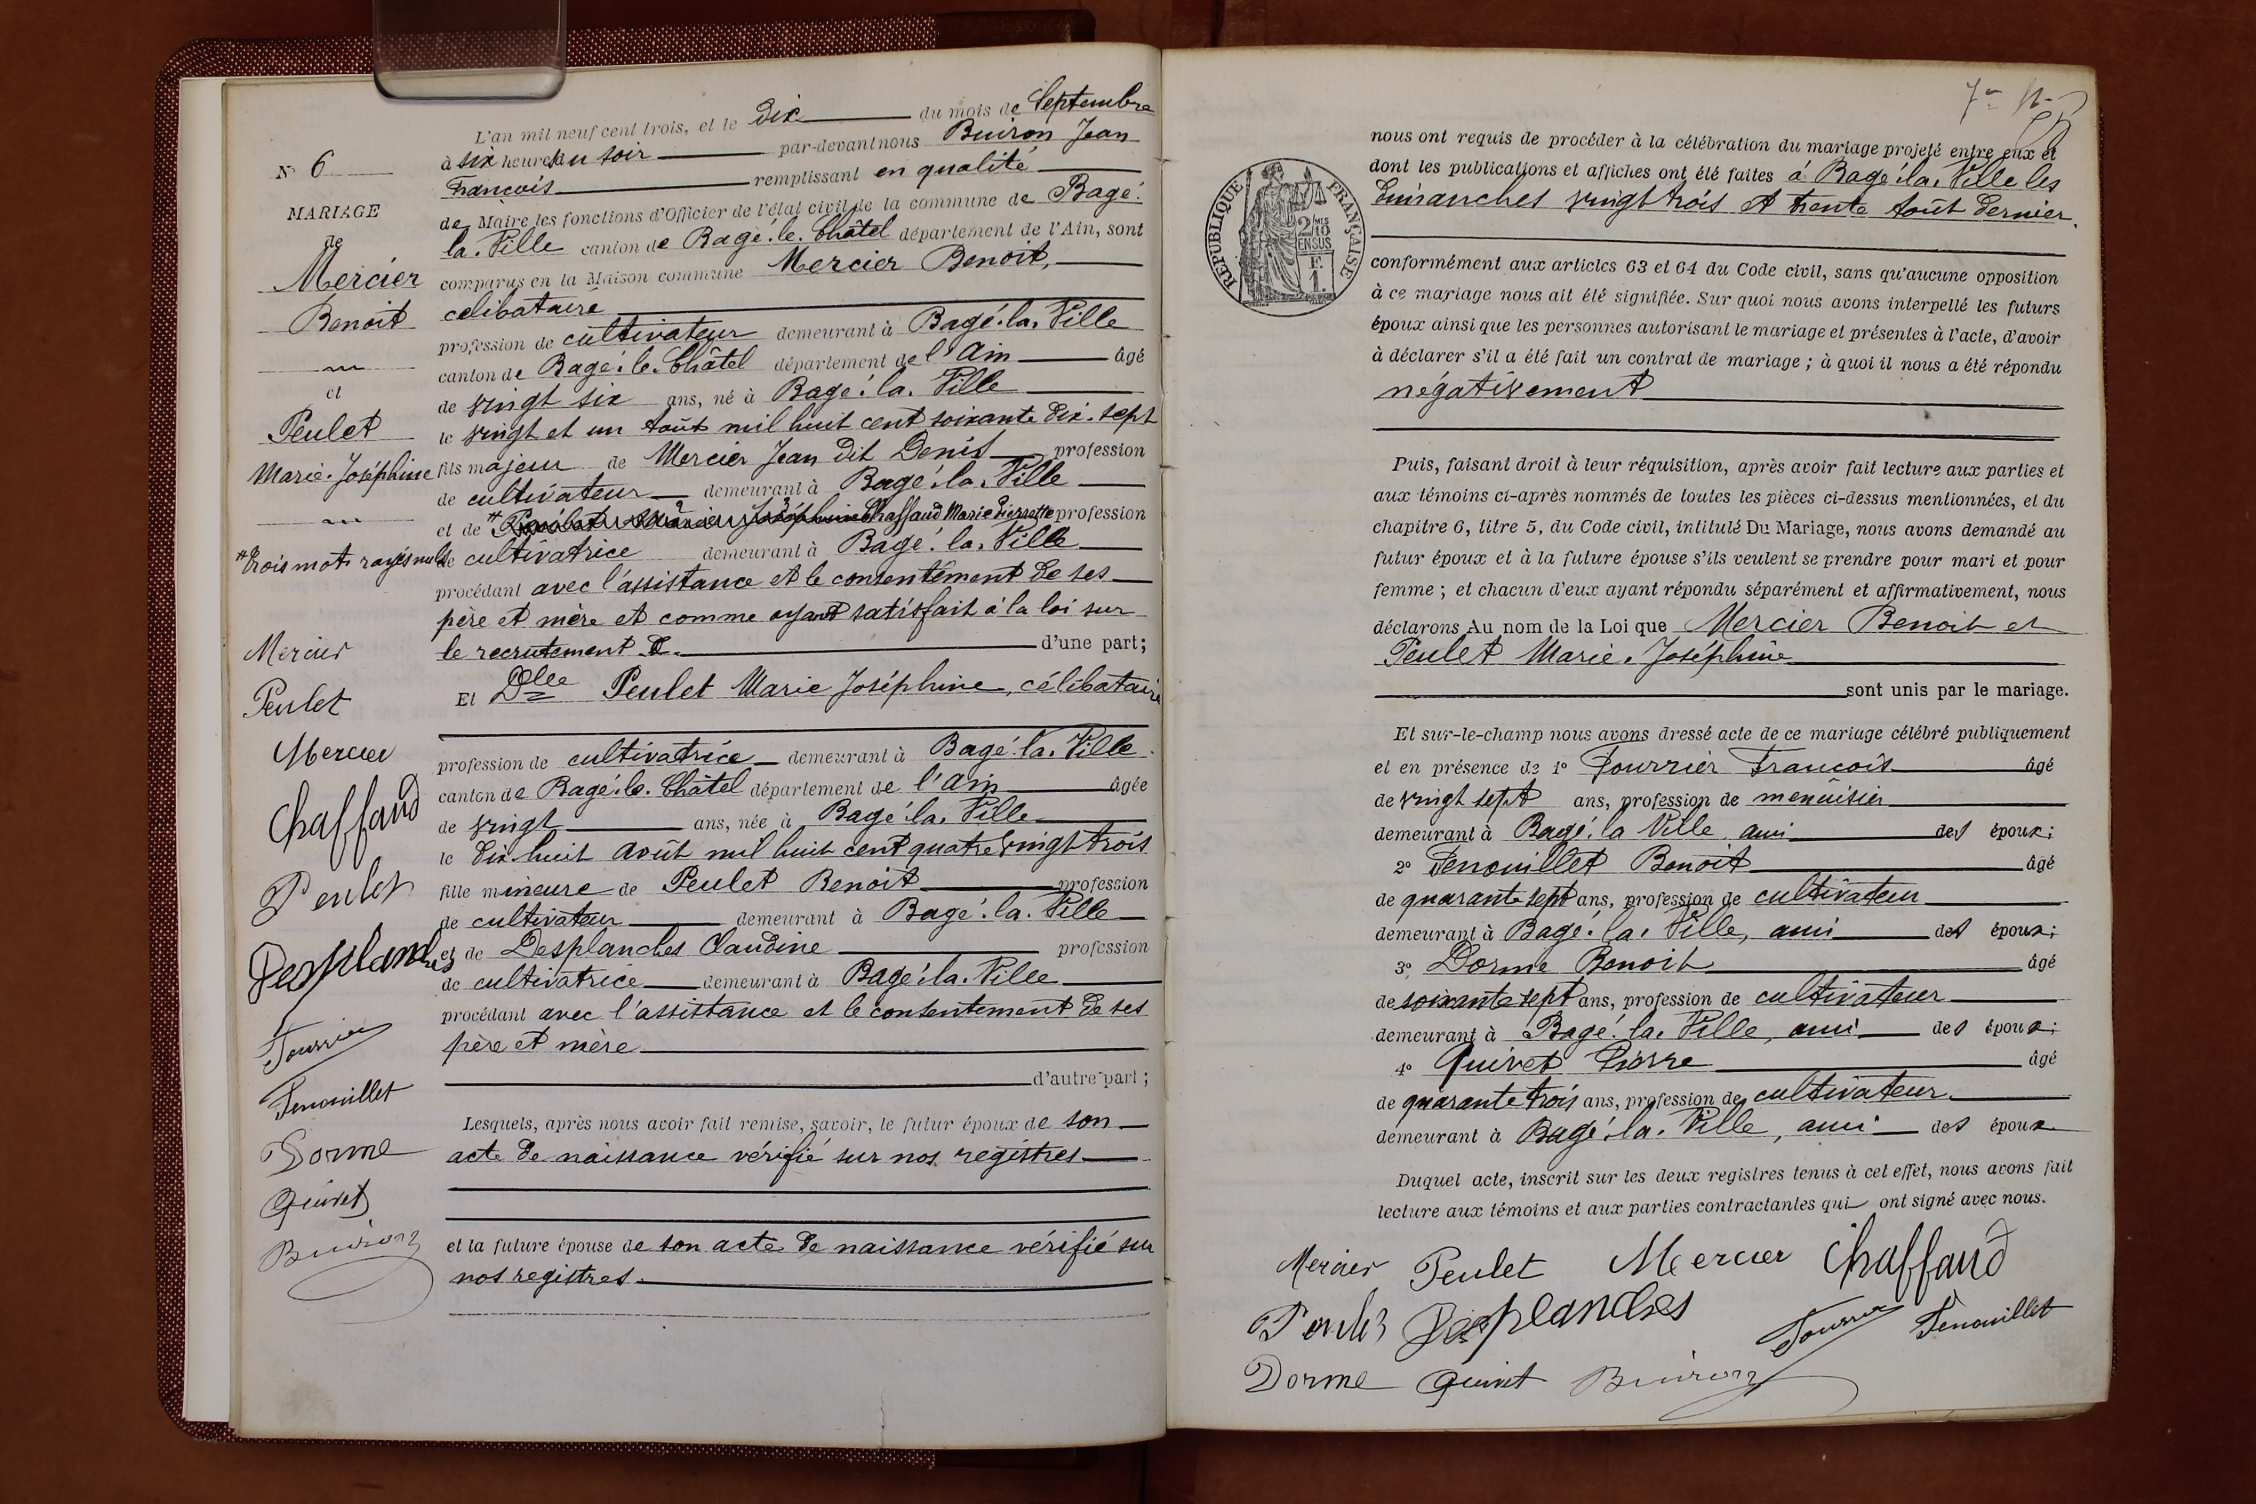 N° 6
MARIAGE
de
Mercier
Benoit
et
Peulet
Marie-Joséphine
* trois mots rayés nuls
Mercier
Peulet
Mercier
Chaffaud
Peulet
Desplanches
Fourrier
Fenouillet
Dorme
Quivet
Buiron
L'an mil neuf cent trois, et le Dix du mois de Septembre
à six heures du soir par-devant nous Buiron Jean
François remplissant en qualité
de Maire les fonctions d'Officier de l'état civil de la commune de Bagé-
la-Ville canton de Bagé-le-Châtel département de l'Ain, sont
comparus en la Maison commune Mercier Benoit,
célibataire
profession de cultivateur demeurant à Bagé-la-Ville
canton de Bagé-le-Châtel département de l'Ain âgé
de vingt six ans, né à Bagé-la-Ville
le vingt et un Août mil huit cent soixante dix-sept
fils majeur de Mercier Jean dit Denis profession
de cultivateur demeurant à Bagé-la-Ville
et de * Chaffaud Marie Pierrette profession
de cultivatrice demeurant à Bagé-la-Ville
procédant avec l'assistance et le consentement de ses
père et mère et comme ayant satisfait à la loi sur
le recrutement d'une part;
Et Dlle Peulet Marie Joséphine, célibataire
profession de cultivatrice demeurant à Bagé-la-Ville
canton de Bagé-le-Châtel département de l'Ain âgée
de vingt ans, née à Bagé-la-Ville
le dix huit Août mil huit cent quatre vingt trois
fille mineure de Peulet Benoit profession
de cultivateur demeurant à Bagé-la-Ville
et de Desplanches Claudine profession
de cultivatrice demeurant à Bagé-la-Ville
procédant avec l'assistance et le consentement de ses
père et mère
d'autre part;
Lesquels, après nous avoir fait remise, savoir, le futur époux de son
acte de naissance vérifié sur nos registres
et la future épouse de son acte de naissance vérifié sur
nos registres.
RÉPUBLIQUE FRANÇAISE
2/10
EN SUS
F.
1.
nous ont requis de procéder à la célébration du mariage projeté entre eux et
dont les publications et affiches ont été faites à Bagé-la-Ville les
Dimanches vingt trois et trente Août dernier.
conformément aux articles 63 et 64 du Code civil, sans qu'aucune opposition
à ce mariage nous ait été signifiée. Sur quoi nous avons interpellé les futurs
époux ainsi que les personnes autorisant le mariage et présentes à l'acte, d'avoir
à déclarer s'il a été fait un contrat de mariage; à quoi il nous a été répondu
négativement
Puis, faisant droit à leur réquisition, après avoir fait lecture aux parties et
aux témoins ci-après nommés de toutes les pièces ci-dessus mentionnées, et du
chapitre 6, titre 5, du Code civil, intitulé Du Mariage, nous avons demandé au
futur époux et à la future épouse s'ils veulent se prendre pour mari et pour
femme; et chacun d'eux ayant répondu séparément et affirmativement, nous
déclarons Au nom de la Loi que Mercier Benoit et
Peulet Marie-Joséphine
sont unis par le mariage.
Et sur-le-champ nous avons dressé acte de ce mariage célébré publiquement
et en présence de 1° Fourrier François âgé
de vingt sept ans, profession de menuisier
demeurant à Bagé-la Ville ami des époux;
2° Fenouillet Benoit âgé
de quarante sept ans, profession de cultivateur
demeurant à Bagé-la-Ville, ami des époux;
3° Dorme Benoit âgé
de soixante sept ans, profession de cultivateur
demeurant à Bagé-la-Ville, ami des époux;
4° Quivet Pierre âgé
de quarante trois ans, profession de cultivateur
demeurant à Bagé-la-Ville, ami des époux
Duquel acte, inscrit sur les deux registres tenus à cet effet, nous avons fait
lecture aux témoins et aux parties contractantes qui ont signé avec nous.
Mercier Peulet Mercier Chaffaud
Peulet Desplanches Fourrier Fenouillet
Dorme Quivet Buiron